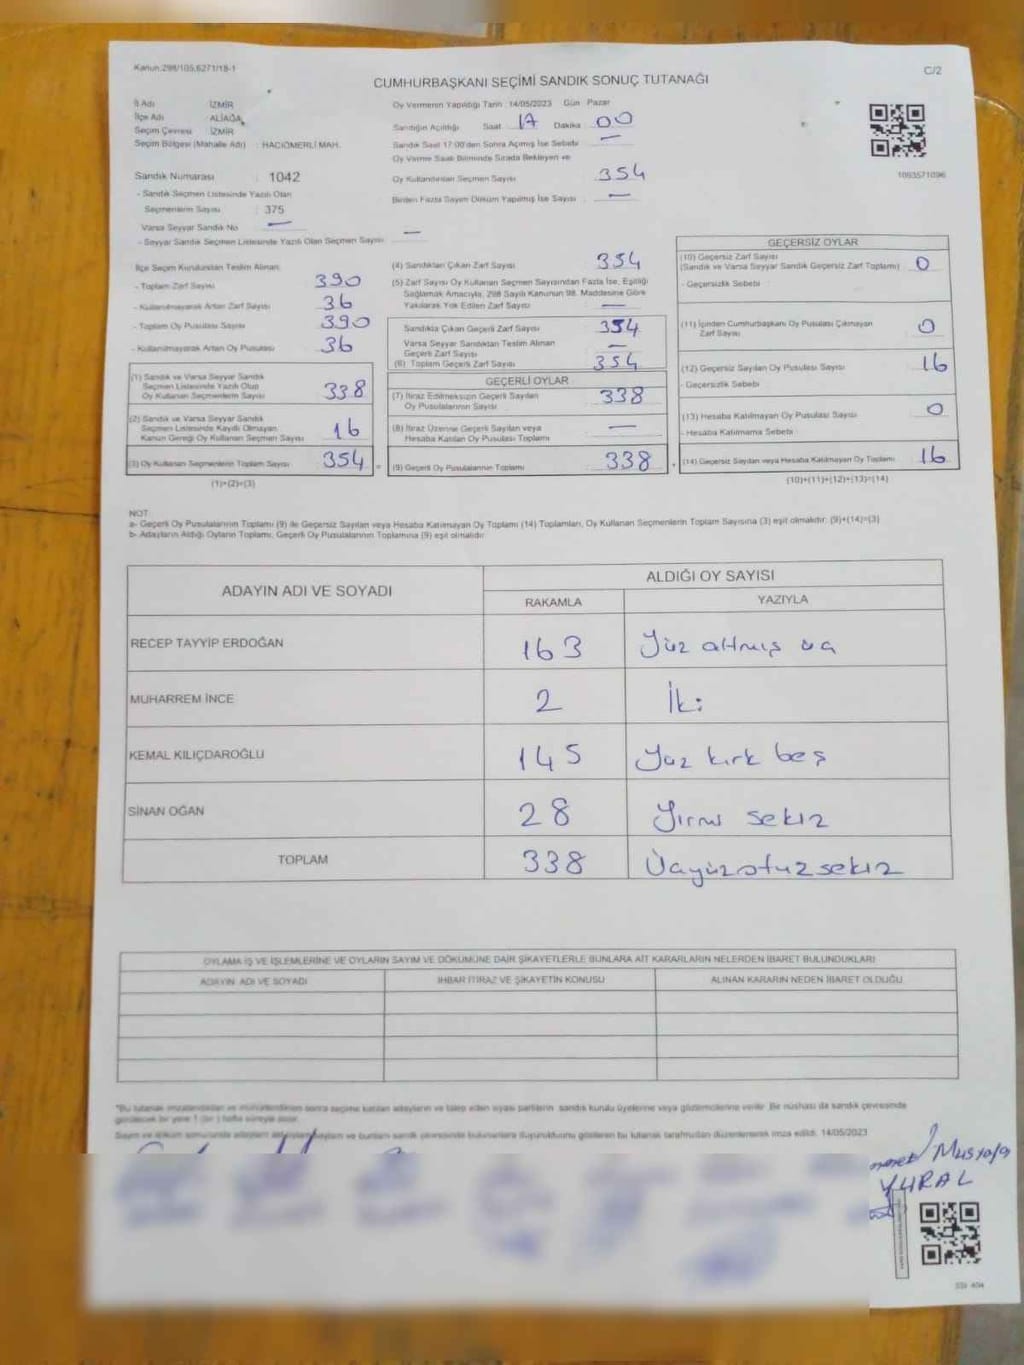 Kanun.298/105,6271/18-1
C/2
CUMHURBAŞKANI SEÇİMİ SANDIK SONUÇ TUTANAĞI
İl Adı İZMİR
İlçe Adı ALİAĞA
Seçim Çevresi İZMİR
Seçim Bölgesi (Mahalle Adı) : HACIÖMERLİ MAH.
Sandık Numarası : 1042
- Sandık Seçmen Listesinde Yazılı Olan
Seçmenlerin Sayısı : 375
Varsa Seyyar Sandık No —
- Seyyar Sandık Seçmen Listesinde Yazılı Olan Seçmen Sayısı —
Oy Vermenin Yapıldığı Tarih : 14/05/2023 Gün Pazar
Sandığın Açıldığı Saat 17 Dakika 00
Sandık Saat 17:00'den Sonra Açılmış İse Sebebi —
Oy Verme Saati Bitiminde Sırada Bekleyen ve
Oy Kullandırılan Seçmen Sayısı 354
Birden Fazla Sayım Döküm Yapılmış İse Sayısı —
1093571096
İlçe Seçim Kurulundan Teslim Alınan:
- Toplam Zarf Sayısı 390
- Kullanılmayarak Artan Zarf Sayısı 36
- Toplam Oy Pusulası Sayısı 390
- Kullanılmayarak Artan Oy Pusulası 36
(1) Sandık ve Varsa Seyyar Sandık
Seçmen Listesinde Yazılı Olup
Oy Kullanan Seçmenlerin Sayısı 338
(2) Sandık ve Varsa Seyyar Sandık
Seçmen Listesinde Kayıtlı Olmayan
Kanun Gereği Oy Kullanan Seçmen Sayısı 16
(3) Oy Kullanan Seçmenlerin Toplam Sayısı 354 =
(1)+(2)=(3)
(4) Sandıktan Çıkan Zarf Sayısı 354
(5) Zarf Sayısı Oy Kullanan Seçmen Sayısından Fazla İse, Eşitliği
Sağlamak Amacıyla, 298 Sayılı Kanunun 98. Maddesine Göre
Yakılarak Yok Edilen Zarf Sayısı —
Sandıkta Çıkan Geçerli Zarf Sayısı 354
Varsa Seyyar Sandıktan Teslim Alınan
Geçerli Zarf Sayısı —
(6) Toplam Geçerli Zarf Sayısı 354
GEÇERLİ OYLAR
(7) İtiraz Edilmeksizin Geçerli Sayılan
Oy Pusulalarının Sayısı 338
(8) İtiraz Üzerine Geçerli Sayılan veya
Hesaba Katılan Oy Pusulası Toplamı —
(9) Geçerli Oy Pusulalarının Toplamı 338 +
GEÇERSİZ OYLAR
(10) Geçersiz Zarf Sayısı
(Sandık ve Varsa Seyyar Sandık Geçersiz Zarf Toplamı) 0
- Geçersizlik Sebebi :
(11) İçinden Cumhurbaşkanı Oy Pusulası Çıkmayan
Zarf Sayısı 0
(12) Geçersiz Sayılan Oy Pusulası Sayısı 16
- Geçersizlik Sebebi
(13) Hesaba Katılmayan Oy Pusulası Sayısı 0
- Hesaba Katılmama Sebebi
(14) Geçersiz Sayılan veya Hesaba Katılmayan Oy Toplamı 16
(10)+(11)+(12)+(13)=(14)
NOT:
a- Geçerli Oy Pusulalarının Toplamı (9) ile Geçersiz Sayılan veya Hesaba Katılmayan Oy Toplamı (14) Toplamları, Oy Kullanan Seçmenlerin Toplam Sayısına (3) eşit olmalıdır. (9)+(14)=(3)
b- Adayların Aldığı Oyların Toplamı, Geçerli Oy Pusulalarının Toplamına (9) eşit olmalıdır.
ADAYIN ADI VE SOYADI ALDIĞI OY SAYISI
RAKAMLA YAZIYLA
RECEP TAYYİP ERDOĞAN 163 Yüz altmış üç
MUHARREM İNCE 2 İki
KEMAL KILIÇDAROĞLU 145 Yüz kırk beş
SİNAN OĞAN 28 Yirmi sekiz
TOPLAM 338 Üçyüzotuzsekiz
OYLAMA İŞ VE İŞLEMLERİNE VE OYLARIN SAYIM VE DÖKÜMÜNE DAİR ŞİKAYETLERLE BUNLARA AİT KARARLARIN NELERDEN İBARET BULUNDUKLARI
ADAYIN ADI VE SOYADI İHBAR İTİRAZ VE ŞİKAYETİN KONUSU ALINAN KARARIN NEDEN İBARET OLDUĞU
*Bu tutanak imzalandıktan ve mühürlendikten sonra seçime katılan adayların ve talep eden siyasi partilerin sandık kurulu üyelerine veya gözlemcilerine verilir. Bir nüshası da sandık çevresinde
görülecek bir yere 1 (bir) hafta süreyle asılır.
bu tutanak tarafımızdan düzenlenerek imza edildi. 14/05/2023
Mustafa
YURAL